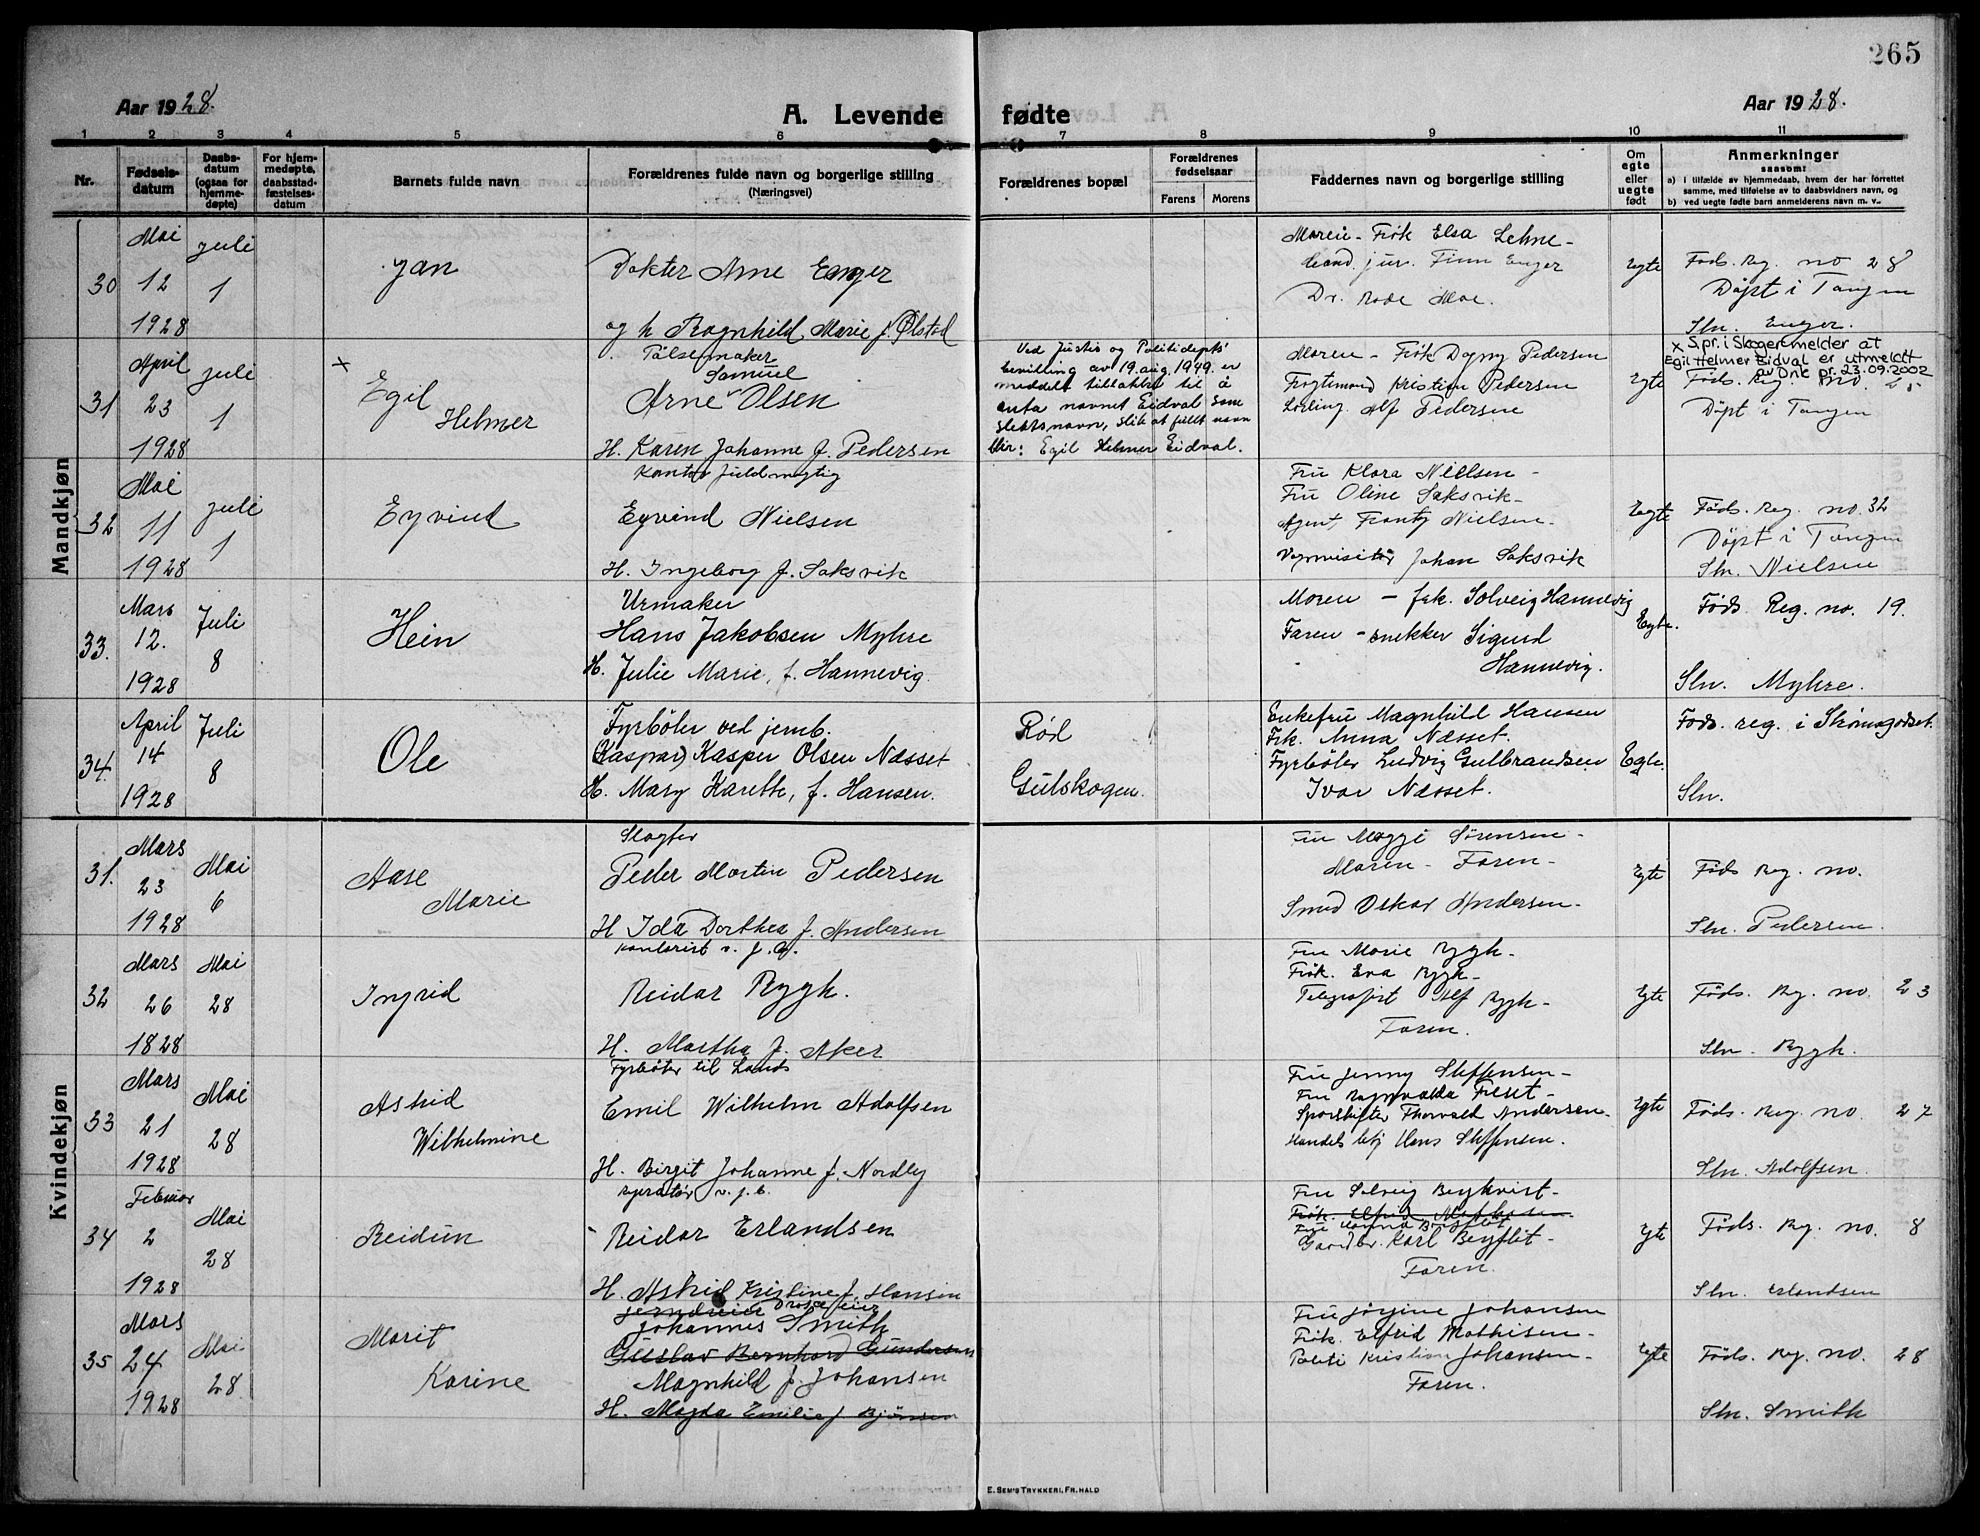 265
Aar 1928.
A. Levende fødte
Aar 1928.
1 2 3 4 5 6 7 8 9 10 11
Nr.
Fødsels-
datum
Daabs-
datum
(ogsaa for
hjemme-
døpte)
For hjem-
medøpte,
daabsstad-
fæstelses-
datum
Barnets fulde navn
Forældrenes fulde navn og borgerlige stilling
(Næringsvei)
Forældrenes bopæl
Forældrenes
fødselsaar
Farens Morens
Faddernes navn og borgerlige stilling
Om
egte
eller
uegte
født
Anmerkninger
saasom:
a) i tilfælde av hjemmedaab, hvem der har forrettet
samme, med tilføielse av to daabsvidners navn, og
b) ved uegte fødte barn anmelderens navn m. v..
Mandkjøn
30
Mai
12
1928
Juli
1
Jan
Dokter Arne Enger
og h Ragnhild Marie f. Ølstad
Moren - Frøk Elsa Lehne -
Cand. jur. Finn Enger
Dr. Rode Moe.
Egte
Føds. Reg. no 28
Døpt i Tangen
Sln. Enger.
31
April
23
1928
Juli
1
x
Egil
Helmer
Pølsemaker
Samuel
Arne Olsen
H. Karen Johanne f. Pedersen
Ved Justis og Politidepts'
bevilling av 19. aug. 1949. er
meddelt tillatelse til å
anta navnet Eidval som
slektsnavn, slik at fullt navn
blir: Egil Helmer Eidval.
Moren - Frøk Dagny Pedersen
Frogtemand Kristian Pedersen
Lærling. Alf Pedersen
Egte
x Spr. i Skoger melder at
Egil Helmer Eidval er utmeldt
av Dnk pr. 23.09.2002
Føds. Reg. no. 25
Døpt i Tangen
32
Mai
11
1928
Juli
1
Eyvind
Kontorfuldmegtig
Eyvind Nielsen
H. Ingeborg f. Saksvik
Fru Klara Nielsen -
Fru Oline Saksvik -
Agent, Frantz Nielsen -
Vognvisitør Johan Saksvik
Egte
Føds. Reg. no. 32
Døpt i Tangen
Sln. Nielsen
33.
Mars
12.
1928
Juli
8
Hein
Urmaker
Hans Jakobsen Myhre
H. Julie Marie, f. Hannevig.
Moren - frk. Solveig Hannevig
Faren - snekker Sigurd
Hannevig.
Egte.
Føds. Reg. no. 19.
Sln. Myhre.
34.
April
14
1928
Juli
8
Ole
Fyrbøter ved jernb.
(Kaspar) Kasper Olsen Næsset
H. Mary Karethe, f. Hansen.
Rød
Gulskogen.
Enkefru Magnhild Hansen
Frk. Anna Næsset.
Fyrbøter Ludvig Gulbrandsen
Ivar Næsset.
Egte.
Føds. reg. i Strømsgodset.
Sln.
Kvindekjøn
31.
Mars
23
1928
Mai
6
Aase
Marie
Slagter
Peder Martin Pedersen
H Ida Dorthea f. Andersen
Fru Maggi Sørensen -
Moren - Faren -
Smed Oskar Andersen -
Egte
Føds Reg. no.
Sln. Pedersen.
32
Mars
26
1828
Mai
28
Ingrid
Kontorist v. j. b.
Reidar Rygh.
H. Martha f. Aker
Fru Marie Rygh -
Frøk. Eva Rygh -
Telegrafist Alf Rygh -
Faren.
Egte
Føds. Reg. no. 23
Sln. Rygh.
33
Mars
21
1928
Mai
28
Astrid
Wilhelmine
Fyrbøter til Lands
Emil Wilhelm Adolfsen
H. Birgit Johanne f. Nordby
Fru Jenny Steffensen -
Fru Ragnvalda Freset -
Sporskifter Thorvald Andersen -
Handels betj Hans Steffensen.
Egte
Føds. Reg. no. 27
Sln. Adolfsen.
34
Februar
2
1928
Mai
28
Reidun
v. j. b.
Reidar Erlandsen
H. Astrid Kristine f. Hansen
Fru Solveig Bergkvist -
Frøk. Elfrid Mathisen
Fru Bergflit
Gaardbr. Karl Bergflit -
Faren.
Egte
Føds. Reg. no. 8
Sln. Erlandsen
35
Mars
24
1928
Mai
28
Marit
Karine
Drosjeeier
Johannes Smith
Gustav Bernhard Gundersen
Magnhild f. Johansen
H. Magda Emilie f Bjønsen
Fru Jørgine Johansen
Frøk. Elfrid Mathisen -
Politi Kristian Johansen -
Faren.
Egte
Føds. Reg. no. 28
Sln. Smith
E. SEM'S TRYKKERI, FR. HALD